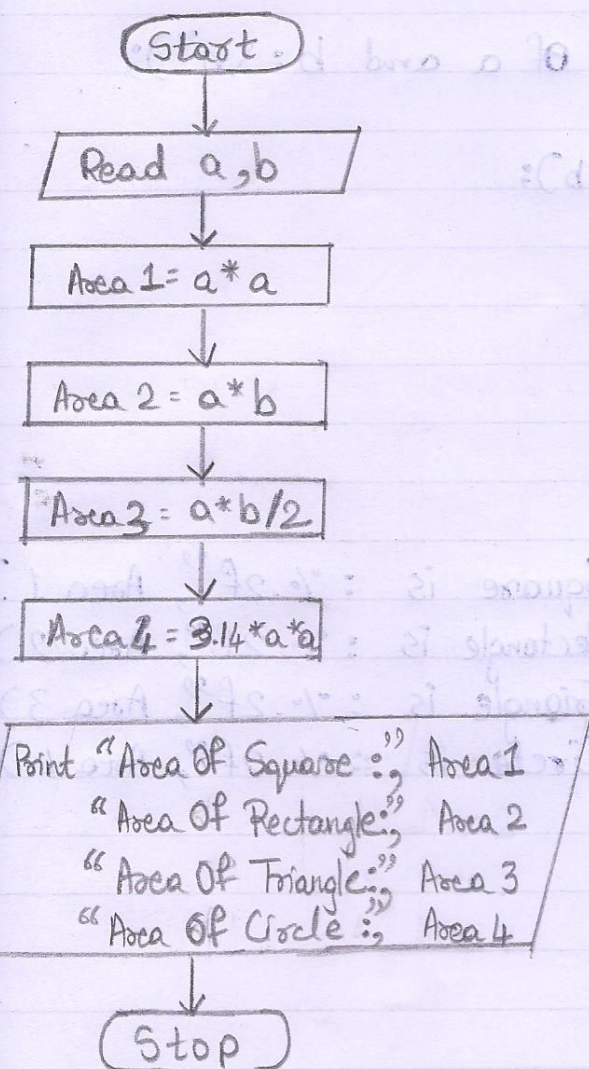 Start
Read a,b
Area 1= a* a
Area 2 = a*b
Area3 = a*b/2
Area 4 = 3.14*a*a
Print “Area Of Square :”, Area 1
“Area Of Rectangle:”, Area 2
“Area Of Triangle:”, Area 3
“Area Of Circle :”, Area 4
Stop